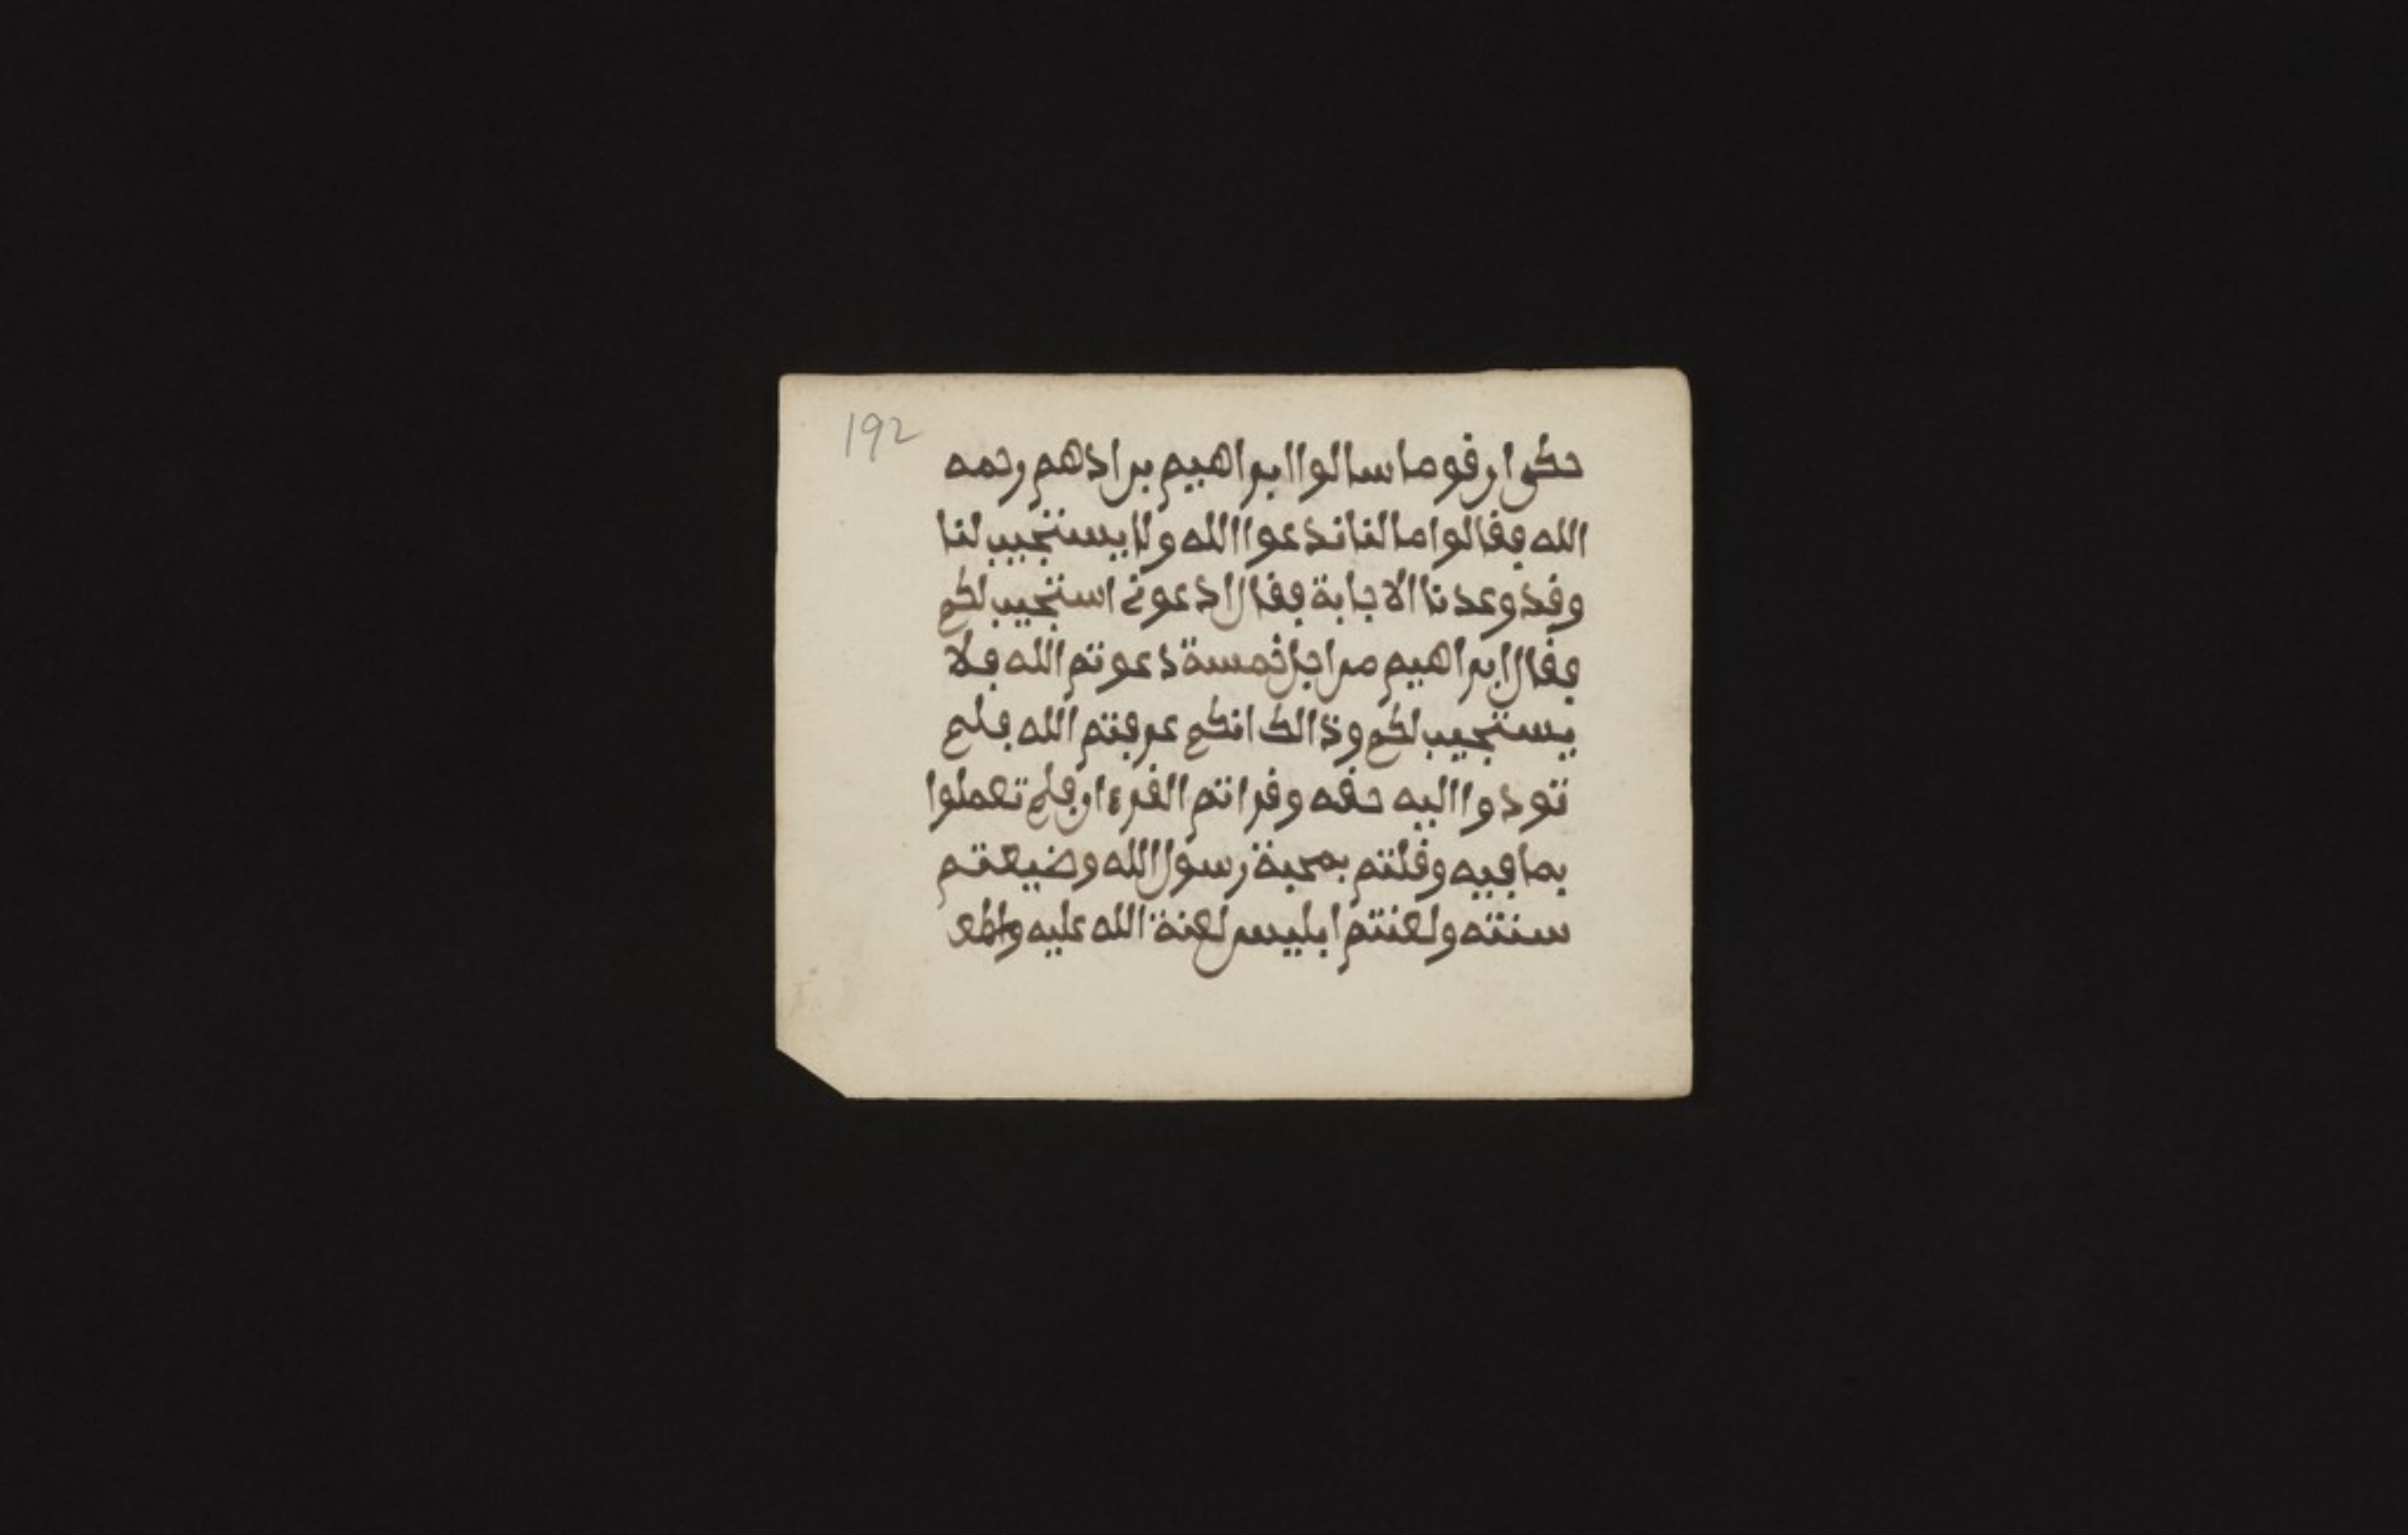 192
حكى ان قوما سالوا ابراهيم بن اذهم رحمه
الله فقالوا ما لنا نذعوا الله ولا يستجيب لنا
وقذ وعدنا الاجابة فقال اذعونى استجيب لكم
فقال ابراهيم من اجل خمسة ذعوتم الله فلا
يستجيب لكم وذالك انكم عرفتم الله فلم
توذوا اليه حقه وقراتم القرءان فلم تعملوا
بما فيه وقلتم بمحبة رسول الله وضيعتم
سنته ولعنتم ابليس لعنة الله عليه